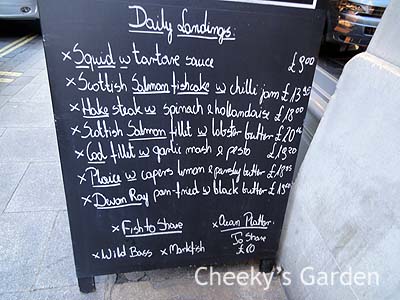 Daily Landings:
× Squid w tartare sauce £9.00
× Scottish Salmon fishcake w chilli jam £13.95
× Hake steak w spinach & hollandaise £18.00
× Scottish Salmon fillet w lobster butter £20.00
× Cod fillet w garlic mash & pesto £19.50
× Plaice w capers lemon & parsley butter £18.95
× Devon Ray pan-fried w black butter £19.00
× Fish to Share
× Wild Bass × Monkfish
× Ocean Platter
To Share
£60
Cheeky's Garden